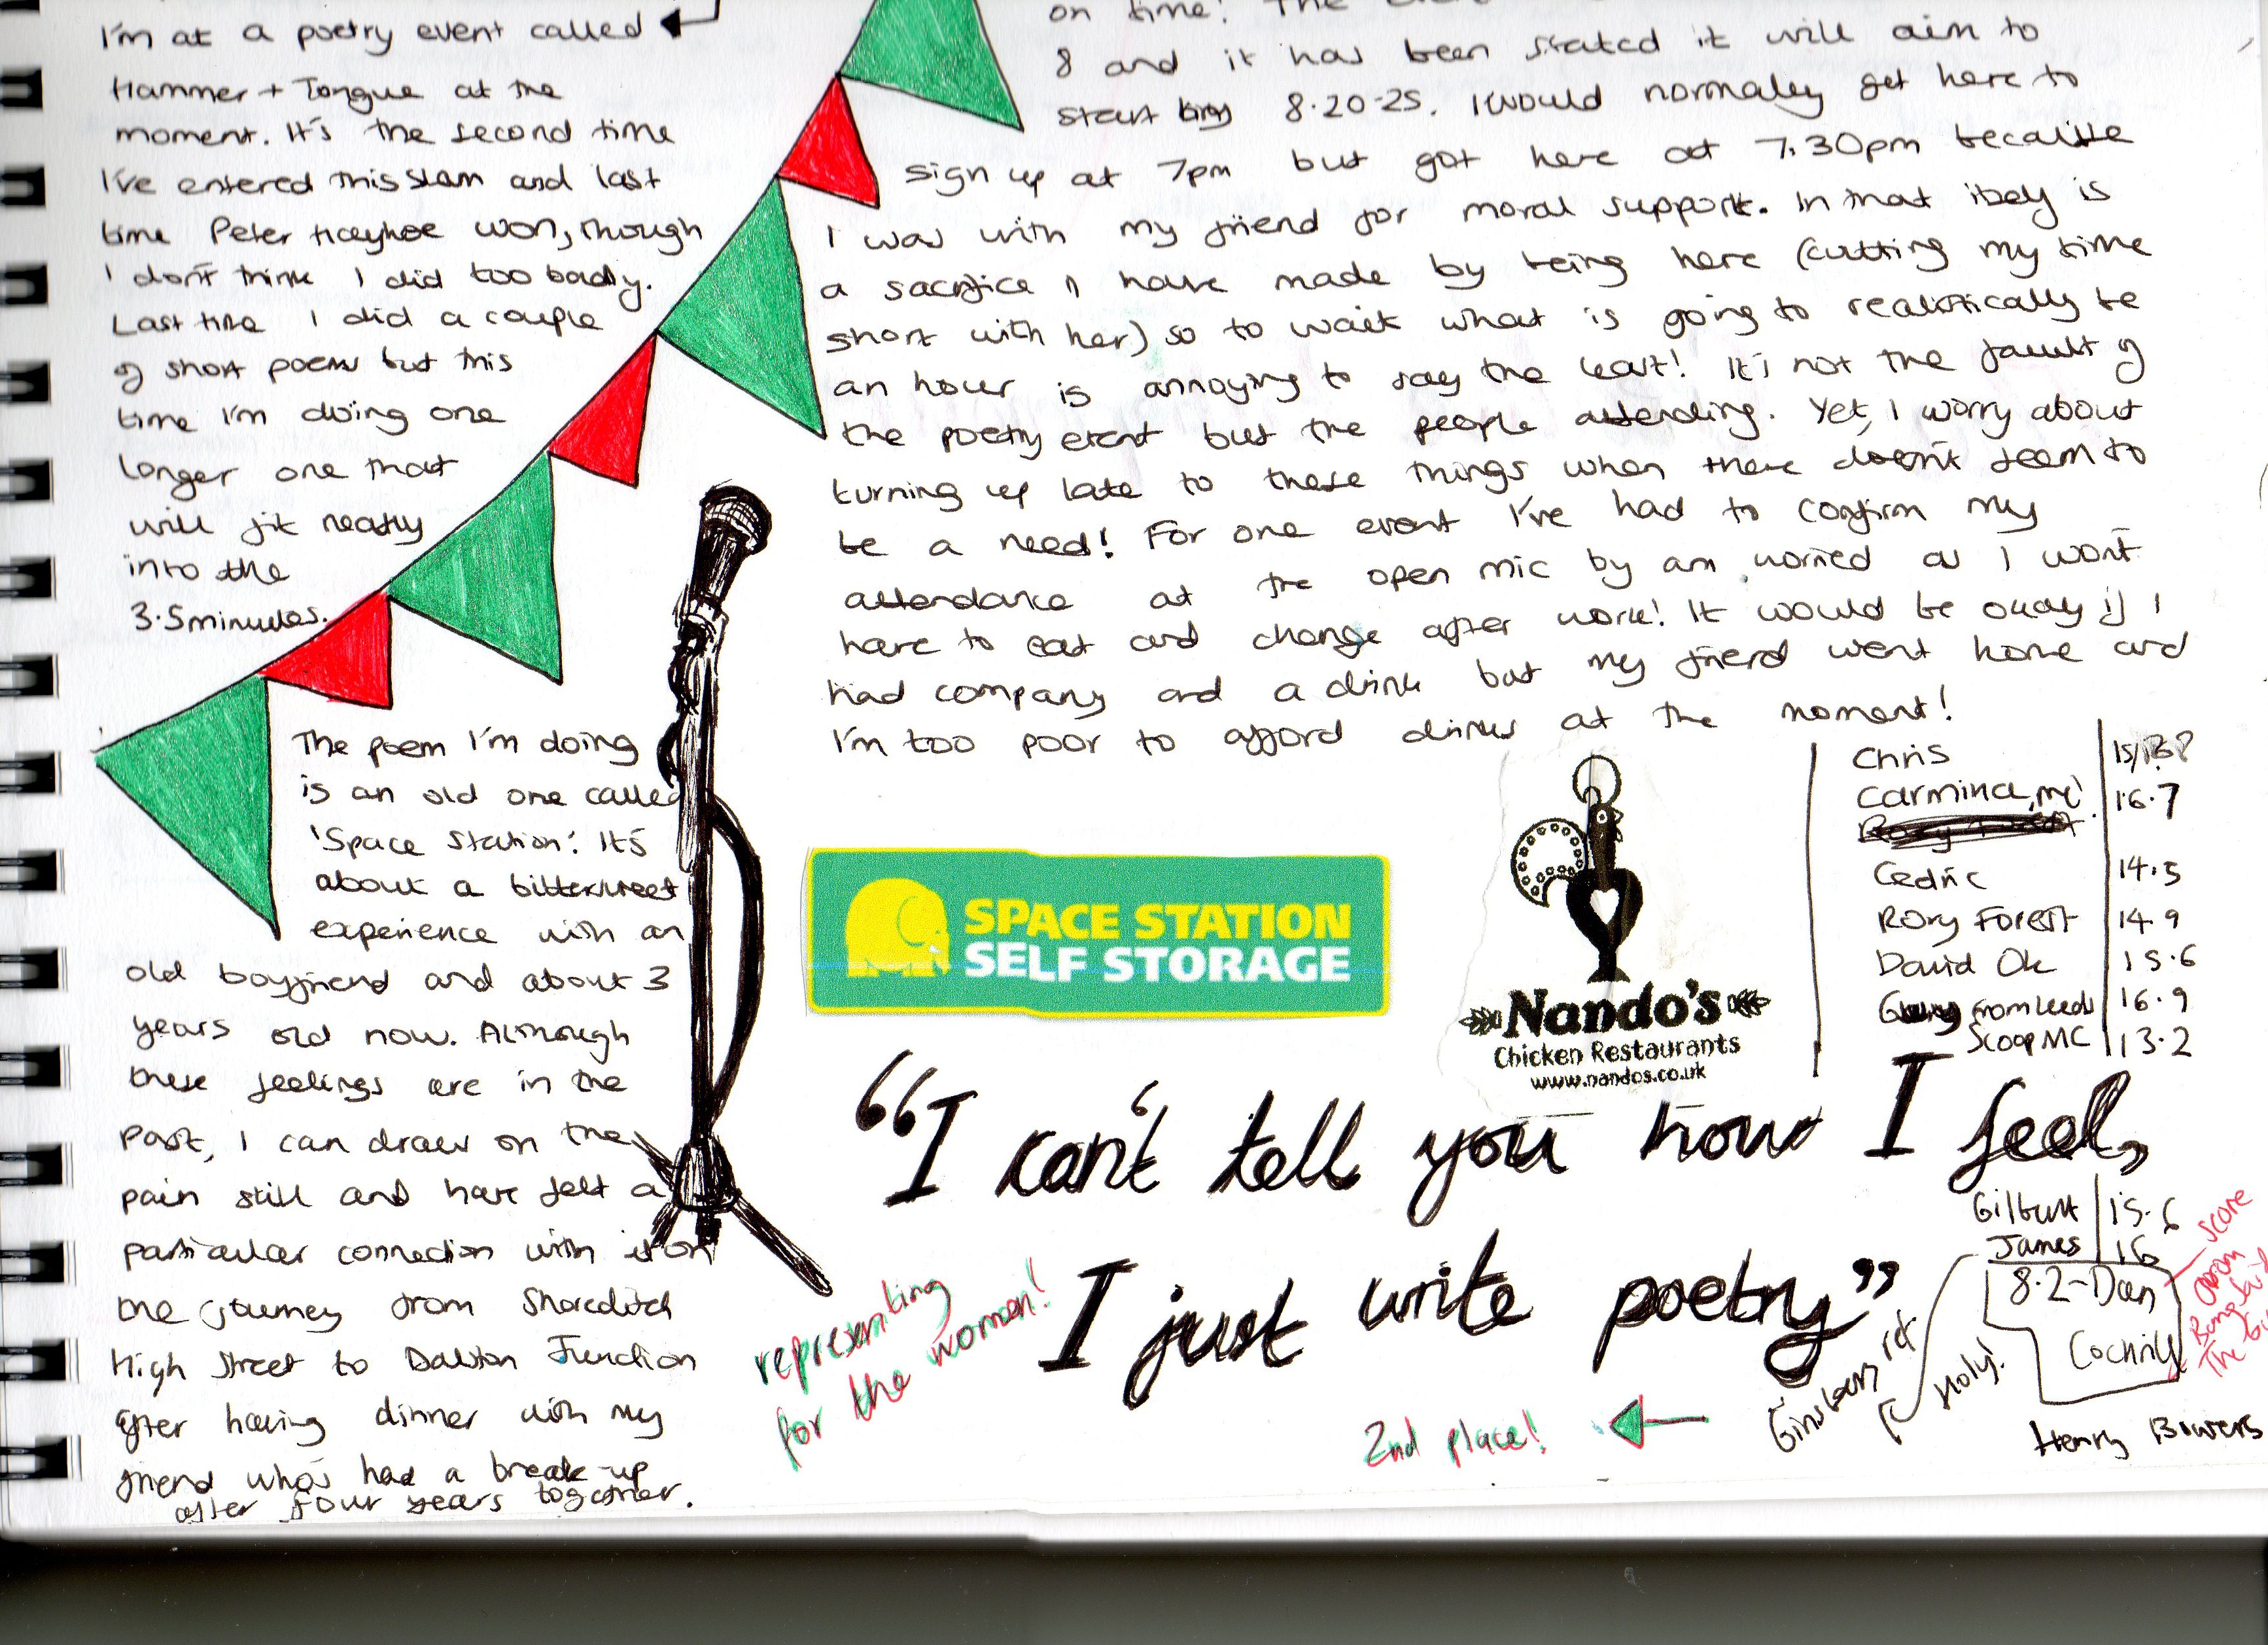 I'm at a poetry event called
Hammer + Tongue at the
moment. It's the second time
I've entered this slam and last
time Peter Hayhoe won, though
I don't think I did too badly.
Last time I did a couple
of short poems but this
time I'm doing one
longer one that
will fit neatly
into the
3.5 minutes.
The poem I'm doing
is an old one called
'Space Station'. It's
about a bittersweet
experience with an
old boyfriend and about 3
years old now. Although
these feelings are in the
past, I can draw on the
pain still and have felt a
particular connection with it on
the journey from Shoreditch
High Street to Dalston Junction
after having dinner with my
friend who's had a break-up
after four years together.
on time! The
8 and it has been stated it will aim to
start 8.20-25. I would normaley get here to
sign up at 7pm but got here at 7.30pm because
I was with my friend for moral support. In that itself is
a sacrifice I have made by being here (cutting my time
short with her) so to wait what is going to realistically be
an hour is annoying to say the least! It's not the fault of
the poetry event but the people attending. Yet, I worry about
turning up late to these things when there doesn't seem to
be a need! For one event I've had to confirm my
attendance at the open mic by am worried as I won't
have to eat and change after work! It would be okay if I
had company and a drink but my friend went home and
I'm too poor to afford drinks at the moment!
SPACE STATION
SELF STORAGE
Nando's
Chicken Restaurants
www.nandos.co.uk
Chris 15/13?
Carmina, me! 16.7
Cedric 14.5
Rory Forest 14.9
David Ok 15.6
from Leeds 16.9
Scoop MC 13.2
"I can't tell you how I feel,
I just write poetry"
Gilbert 15.6
James 16
8.2-Dan
Cockrill
score
The
Ginsberg
Holy!
Henry Bowers
representing
for the women!
2nd place!